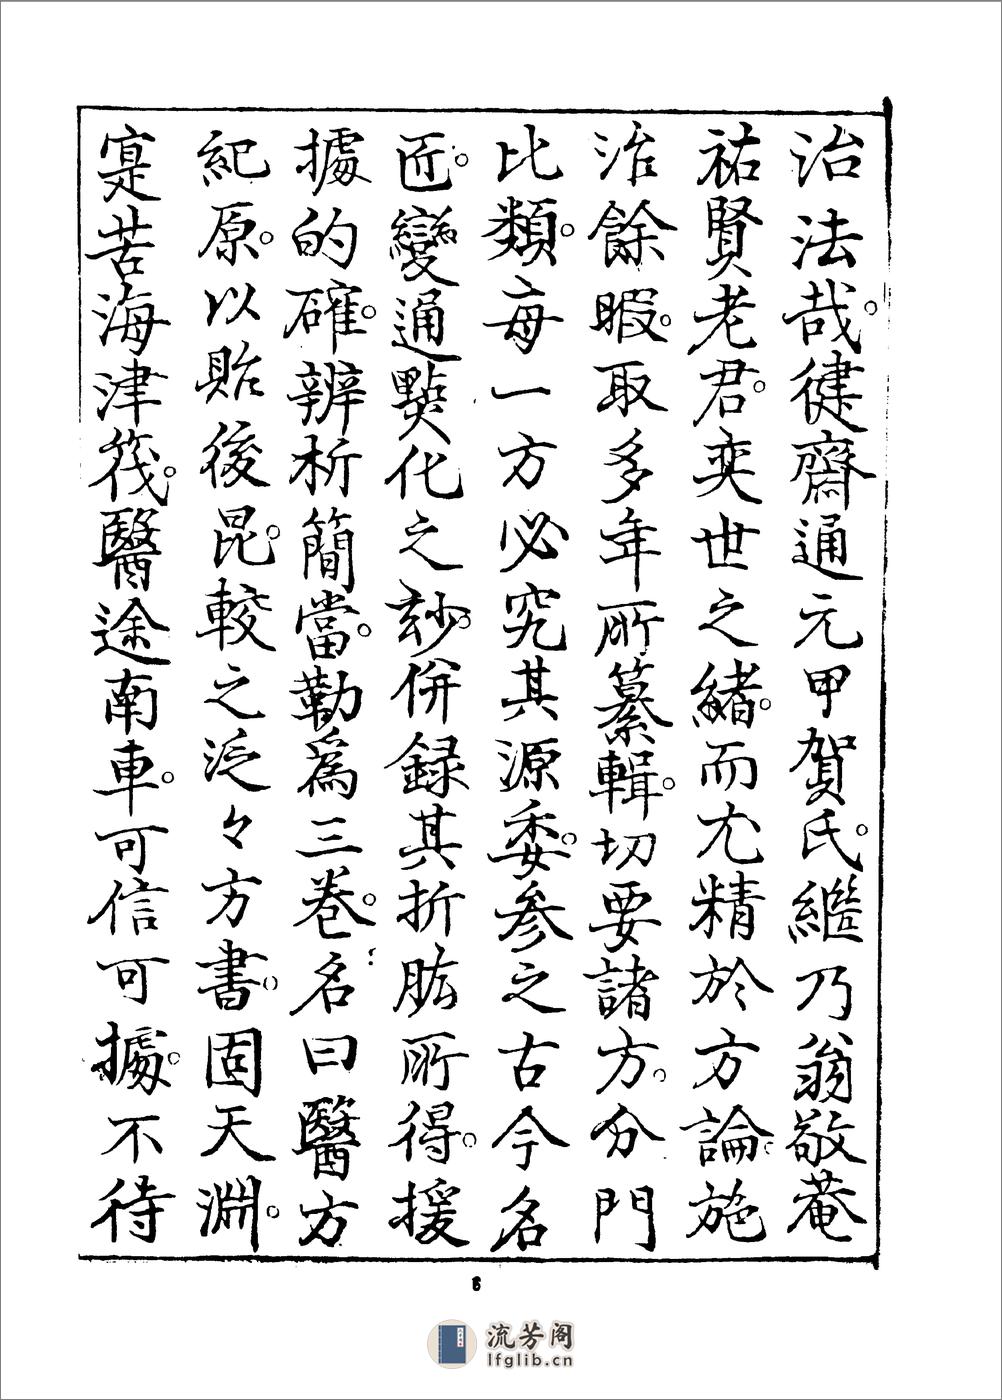 治法哉。健齋通元甲賀氏。繼乃翁敬菴
祐賢老君。奕世之緒。而尤精於方論。施
治餘暇。取多年所纂輯。切要諸方。分門
比類。每一方必究其源委。參之古今名
匠。變通點化之玅。併録其折肱所得。援
據的確。辨析簡當。勒為三卷。名曰醫方
紀原。以貽後昆。較之泛々方書。固天淵。
寔苦海津筏。醫途南車。可信可據。不待
6
流芳阁
lfglib.cn